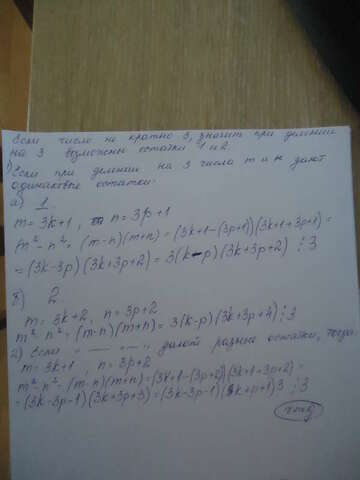 Если число не кратно 3, значит при делении
на 3 возможны остатки 1 и 2.
1) Если при делении на 3 числа m и n дают
одинаковые остатки:
а) 1
m = 3k+1, n = 3p+1
m² - n² = (m-n)(m+n) = (3k+1-(3p+1))(3k+1+3p+1) =
= (3k-3p)(3k+3p+2) = 3(k-p)(3k+3p+2) ⋮3
б) 2
m = 3k+2, n = 3p+2
m² - n² = (m-n)(m+n) = 3(k-p)(3k+3p+4)⋮3
2) Если — " — — " — дают разные остатки, тогда
m = 3k+1, n = 3p+2
m² - n² = (m-n)(m+n) = (3k+1-(3p+2))(3k+1+3p+2) =
= (3k-3p-1)(3k+3p+3) = (3k-3p-1)(k+p+1)3 ⋮3